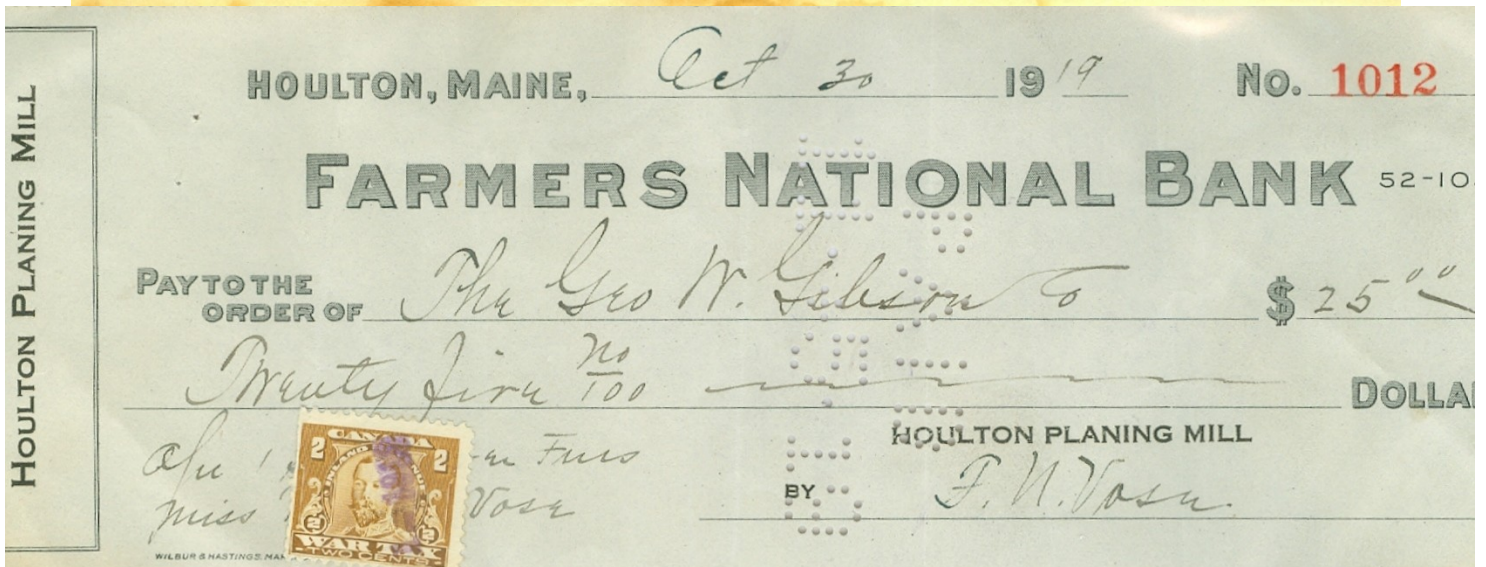 HOULTON PLANING MILL
HOULTON, MAINE, Oct 30 1919 No. 1012
FARMERS NATIONAL BANK 52-10
PAY TO THE ORDER OF The Geo W. Gibson Co $ 25 00
Twenty five no/100 DOLLA
HOULTON PLANING MILL
Furs
BY F. N. Vose
Miss Vose
CANADA
2 2
INLAND
2 2
WAR TAX
TWO CENTS
WILBUR & HASTINGS.